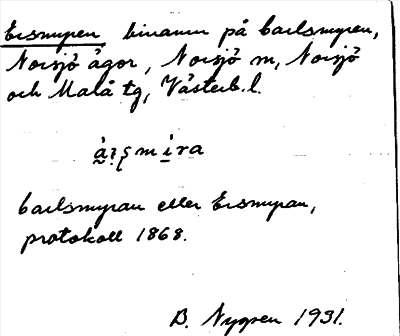 Ersmyren, binamn på Carlsmyren,
Norsjö ägor, Norsjö sn, Norsjö
och Malå tg, Västerb. l.
Carlsmyran eller Ersmyran,
protokoll 1868.
B. Nygren 1931.